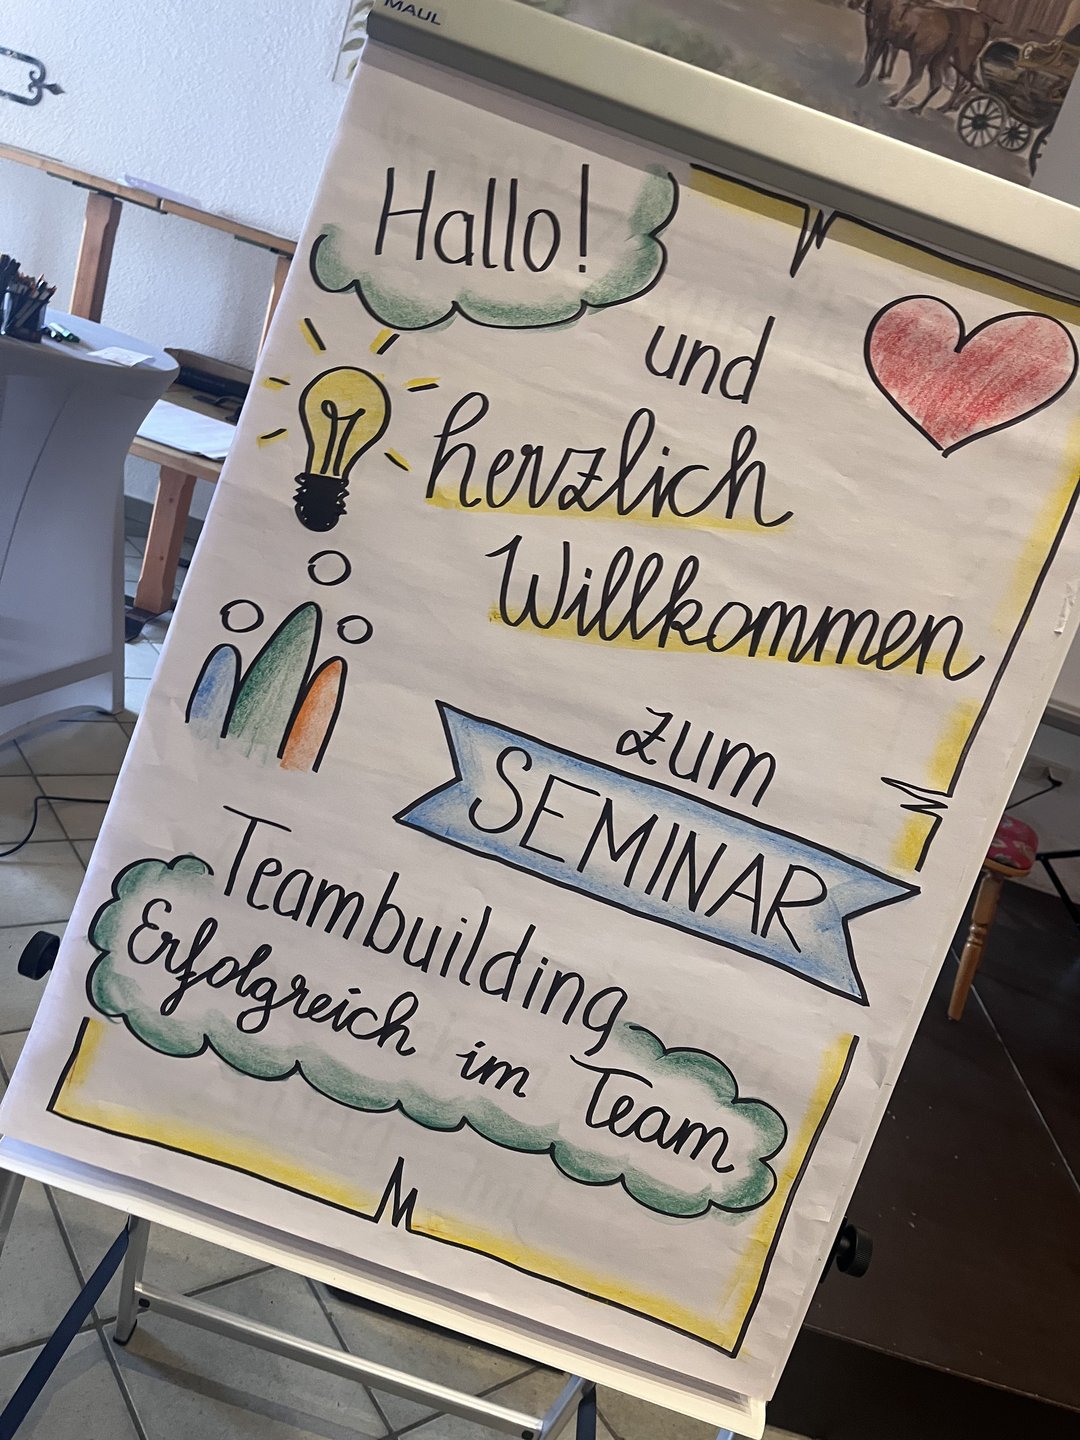 MAUL
Hallo!
und
herzlich
Willkommen
zum
SEMINAR
Teambuilding
Erfolgreich im Team